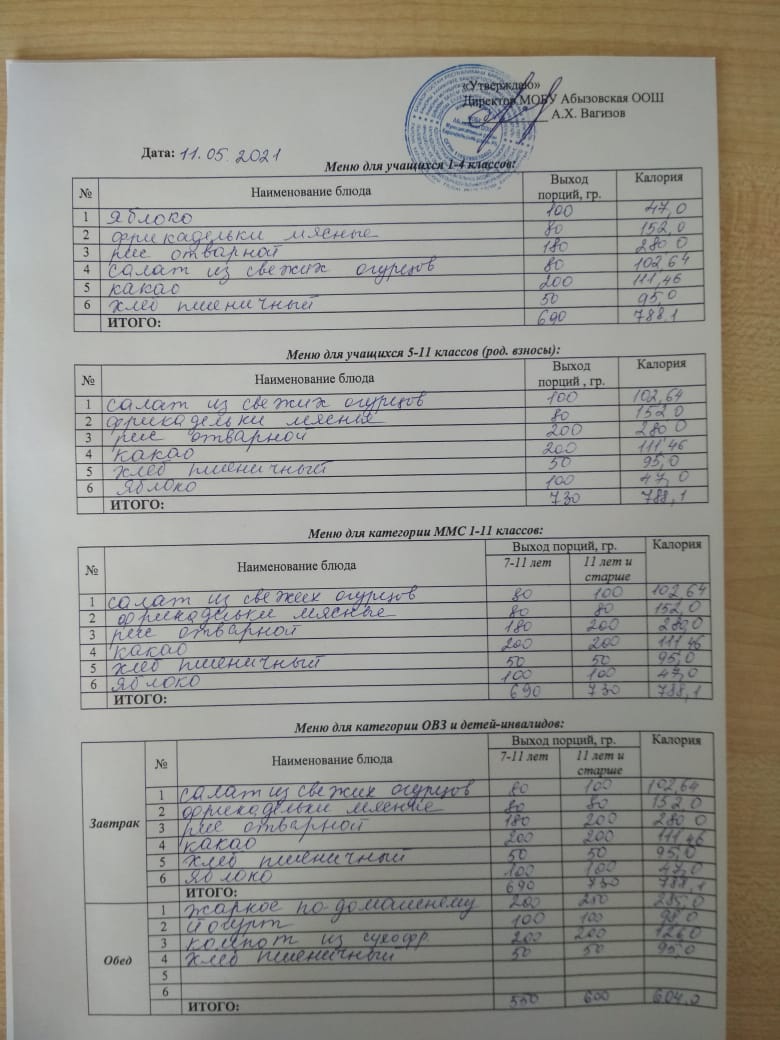 «Утверждаю»
Директор МОБУ Абызовская ООШ
А.Х. Вагизов
Дата: 11.05.2021
Меню для учащихся 1-4 классов:
№ Наименование блюда Выход порций, гр. Калория
1 Яблоко 100 47,0
2 фрикадельки мясные 80 152,0
3 рис отварной 180 280 0
4 салат из свежих огурцов 80 102,64
5 какао 200 111,46
6 хлеб пшеничный 50 95,0
ИТОГО: 690 788,1
Меню для учащихся 5-11 классов (род. взносы):
№ Наименование блюда Выход порций , гр. Калория
1 салат из свежих огурцов 100 102,64
2 фрикадельки мясные 80 152 0
3 рис отварной 200 280 0
4 какао 200 111,46
5 хлеб пшеничный 50 95,0
6 Яблоко 100 47,0
ИТОГО: 730 788,1
Меню для категории ММС 1-11 классов:
№ Наименование блюда Выход порций, гр. Калория
7-11 лет 11 лет и старше
1 салат из свежих огурцов 80 100 102,64
2 фрикадельки мясные 80 80 152,0
3 рис отварной 180 200 280,0
4 какао 200 200 111,46
5 хлеб пшеничный 50 50 95,0
6 Яблоко 100 100 47,0
ИТОГО: 690 730 788,1
Меню для категории ОВЗ и детей-инвалидов:
№ Наименование блюда Выход порций, гр. Калория
7-11 лет 11 лет и старше
Завтрак
1 салат из свежих огурцов 80 100 102,64
2 фрикадельки мясные 80 80 152 0
3 рис отварной 180 200 280 0
4 какао 200 200 111,46
5 хлеб пшеничный 50 50 95,0
6 Яблоко 100 100 47,0
ИТОГО: 690 730 788,1
Обед
1 жаркое по-домашнему 200 250 285,0
2 йогурт 100 100 98,0
3 компот из сухофр 200 200 126,0
4 хлеб пшеничный 50 50 95,0
5
6
ИТОГО: 550 600 604,0